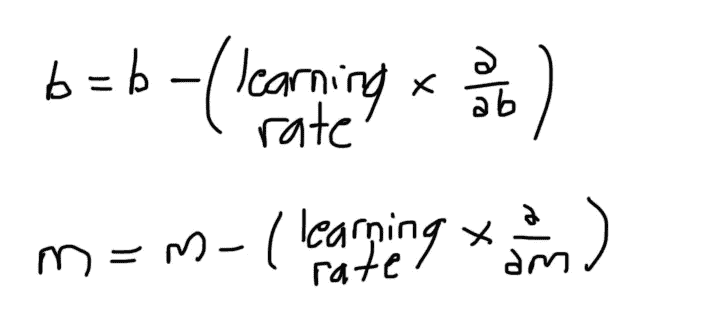 b = b - ( learning rate × ∂/∂b )
m = m - ( learning rate × ∂/∂m )